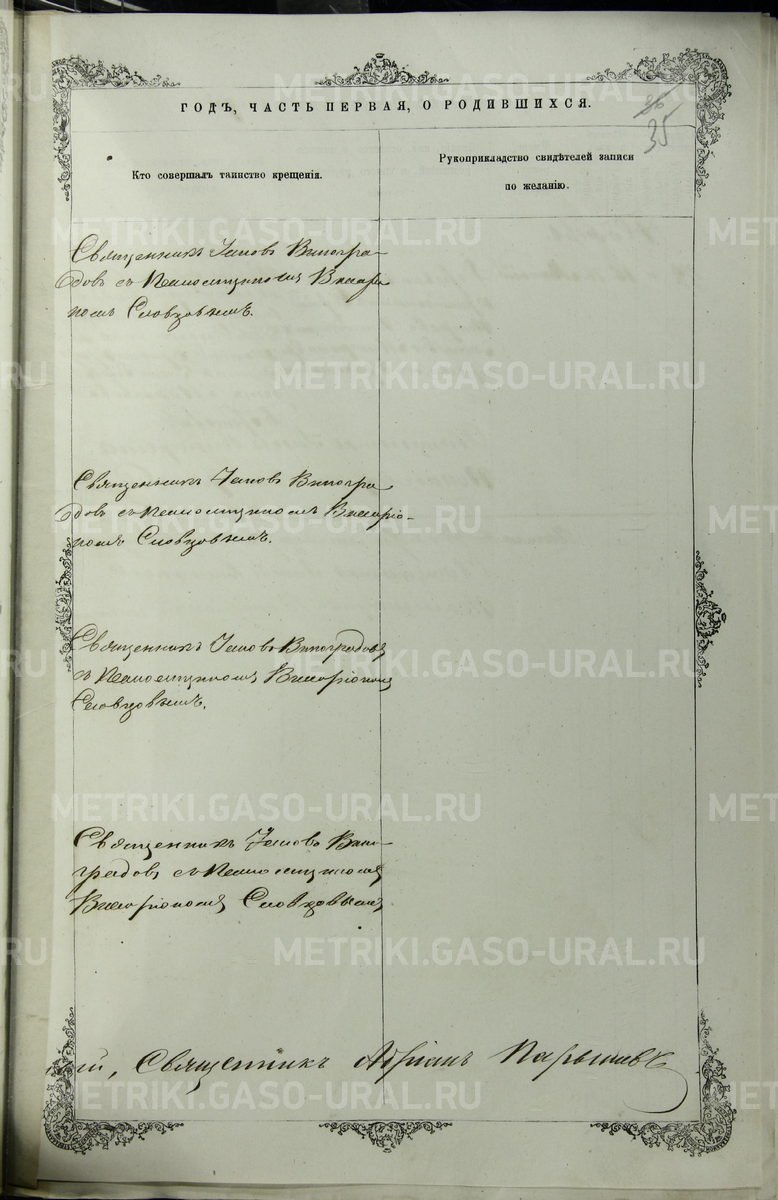 ГОДЪ, ЧАСТЬ ПЕРВАЯ, О РОДИВШИХСЯ.
35
Кто совершалъ таинство крещенія.
Рукоприкладство свидѣтелей записи
по желанію.
Священникъ Іаковъ Виногра-
довъ съ Псаломщикомъ
Словцовымъ.
Священникъ Іаковъ Виногра-
довъ съ Псаломщикомъ
Словцовымъ.
Священникъ Іаковъ Виноградовъ
съ Псаломщикомъ
Словцовымъ.
Священникъ Іаковъ Вино-
градовъ съ Псаломщикомъ
Словцовымъ
Священникъ Адріанъ
METRIKI.GASO-URAL.RU